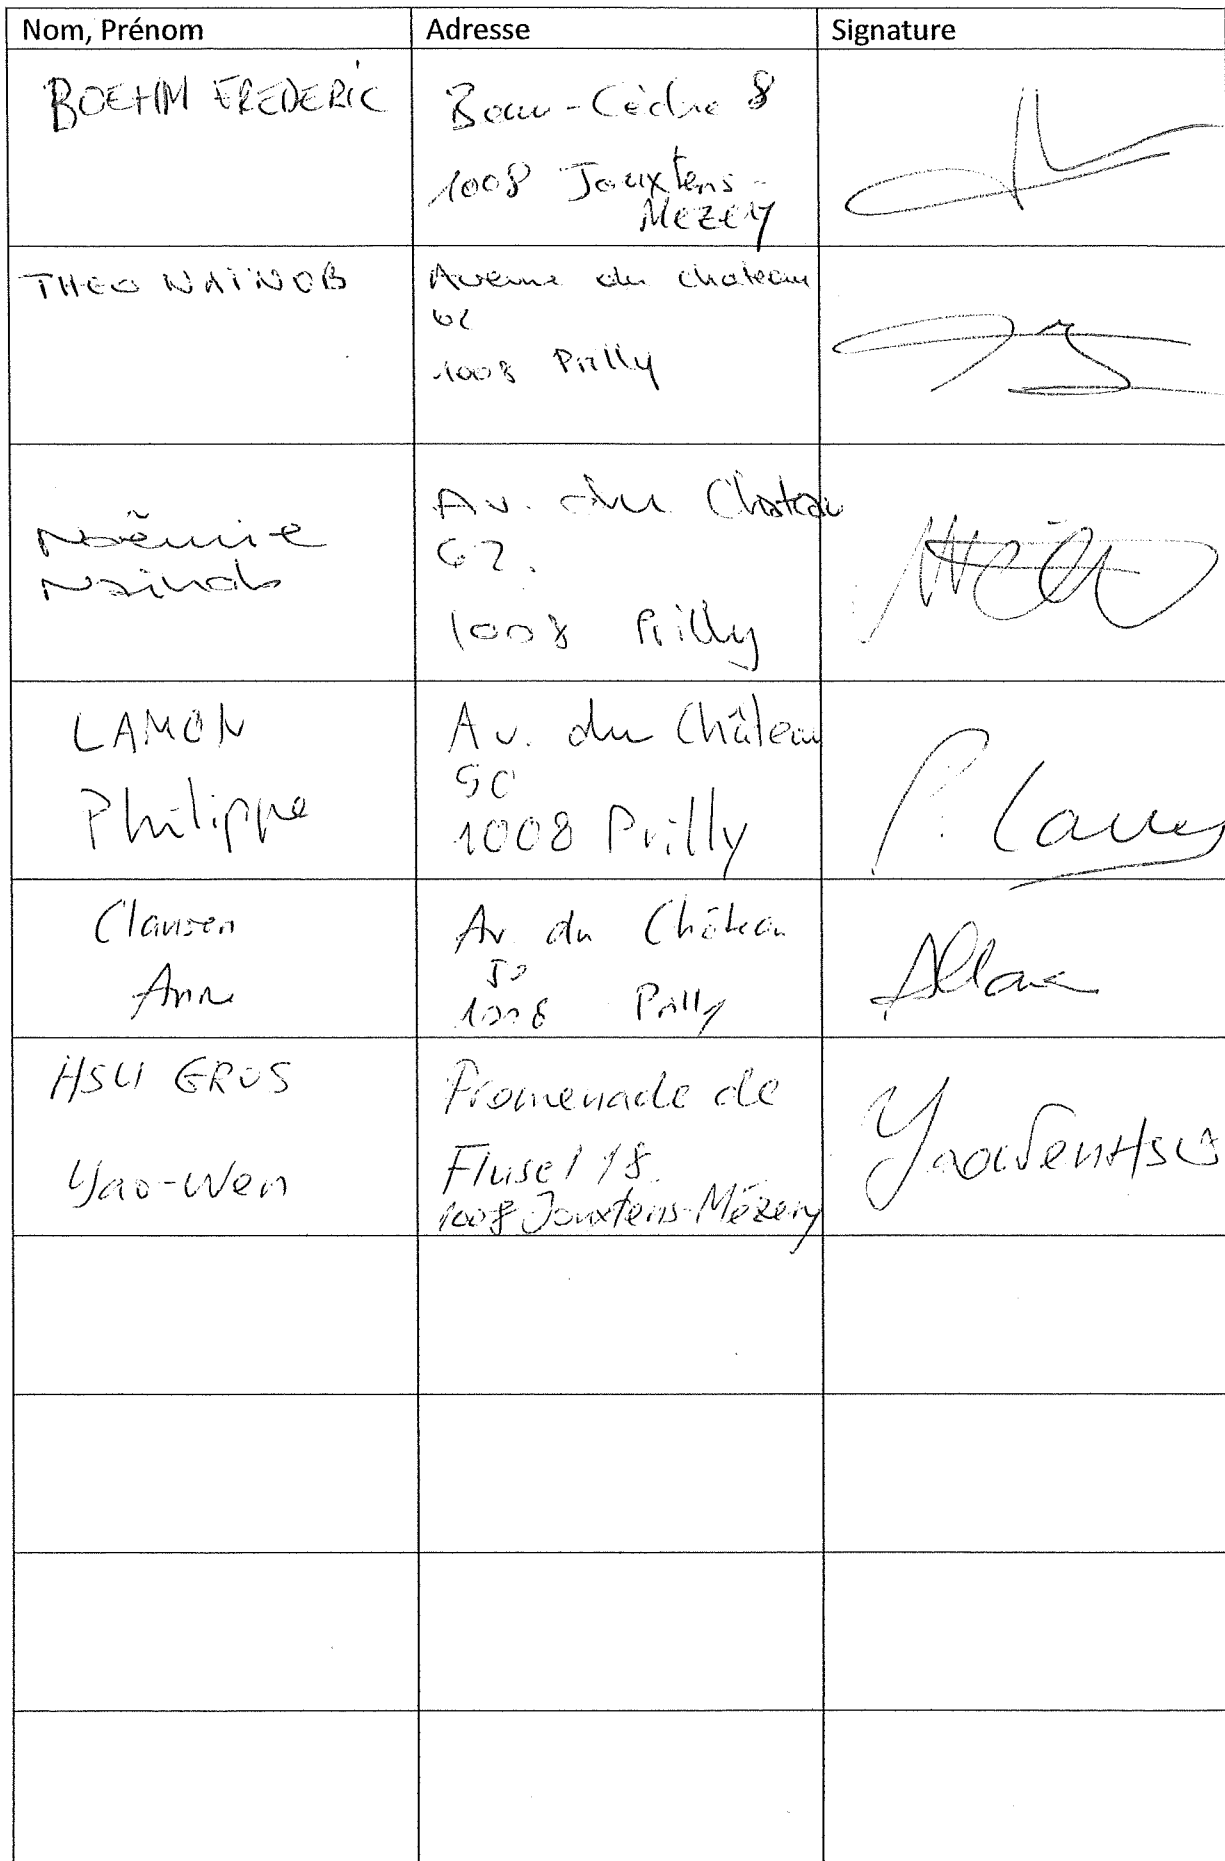 Nom, Prénom Adresse Signature
BOEHM FREDERIC
Beau-Cèdre 8
1008 Jouxtens-
Mezery
THEO NAÏNOB
Avenue du chateau
62
1008 Prilly
Noëmie
Naïnob
Av. du Chateau
62.
1008 Prilly
LAMON
Philippe
Av. du Château
50
1008 Prilly
P. Lamon
Clausen
Anne
Av. du Château
50
1008 Prilly
HSU GROS
Yao-Wen
Promenade de
Flusel 18.
1008 Jouxtens-Mézery
YaoWenHsu